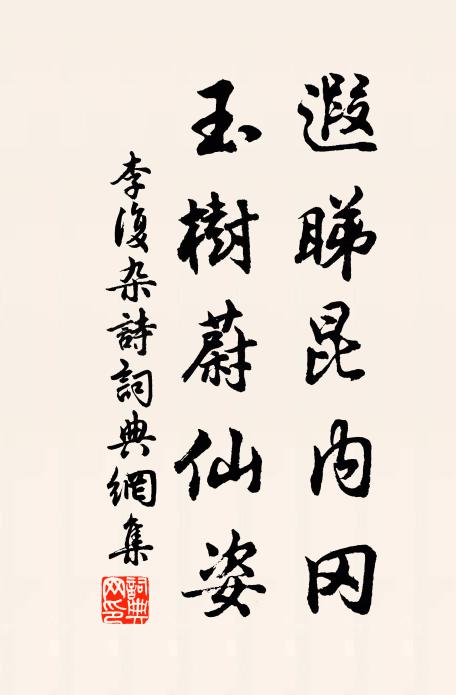 遐睇昆内冈
玉樹蔚仙姿
李復杂詩詞典網集
詞典網印